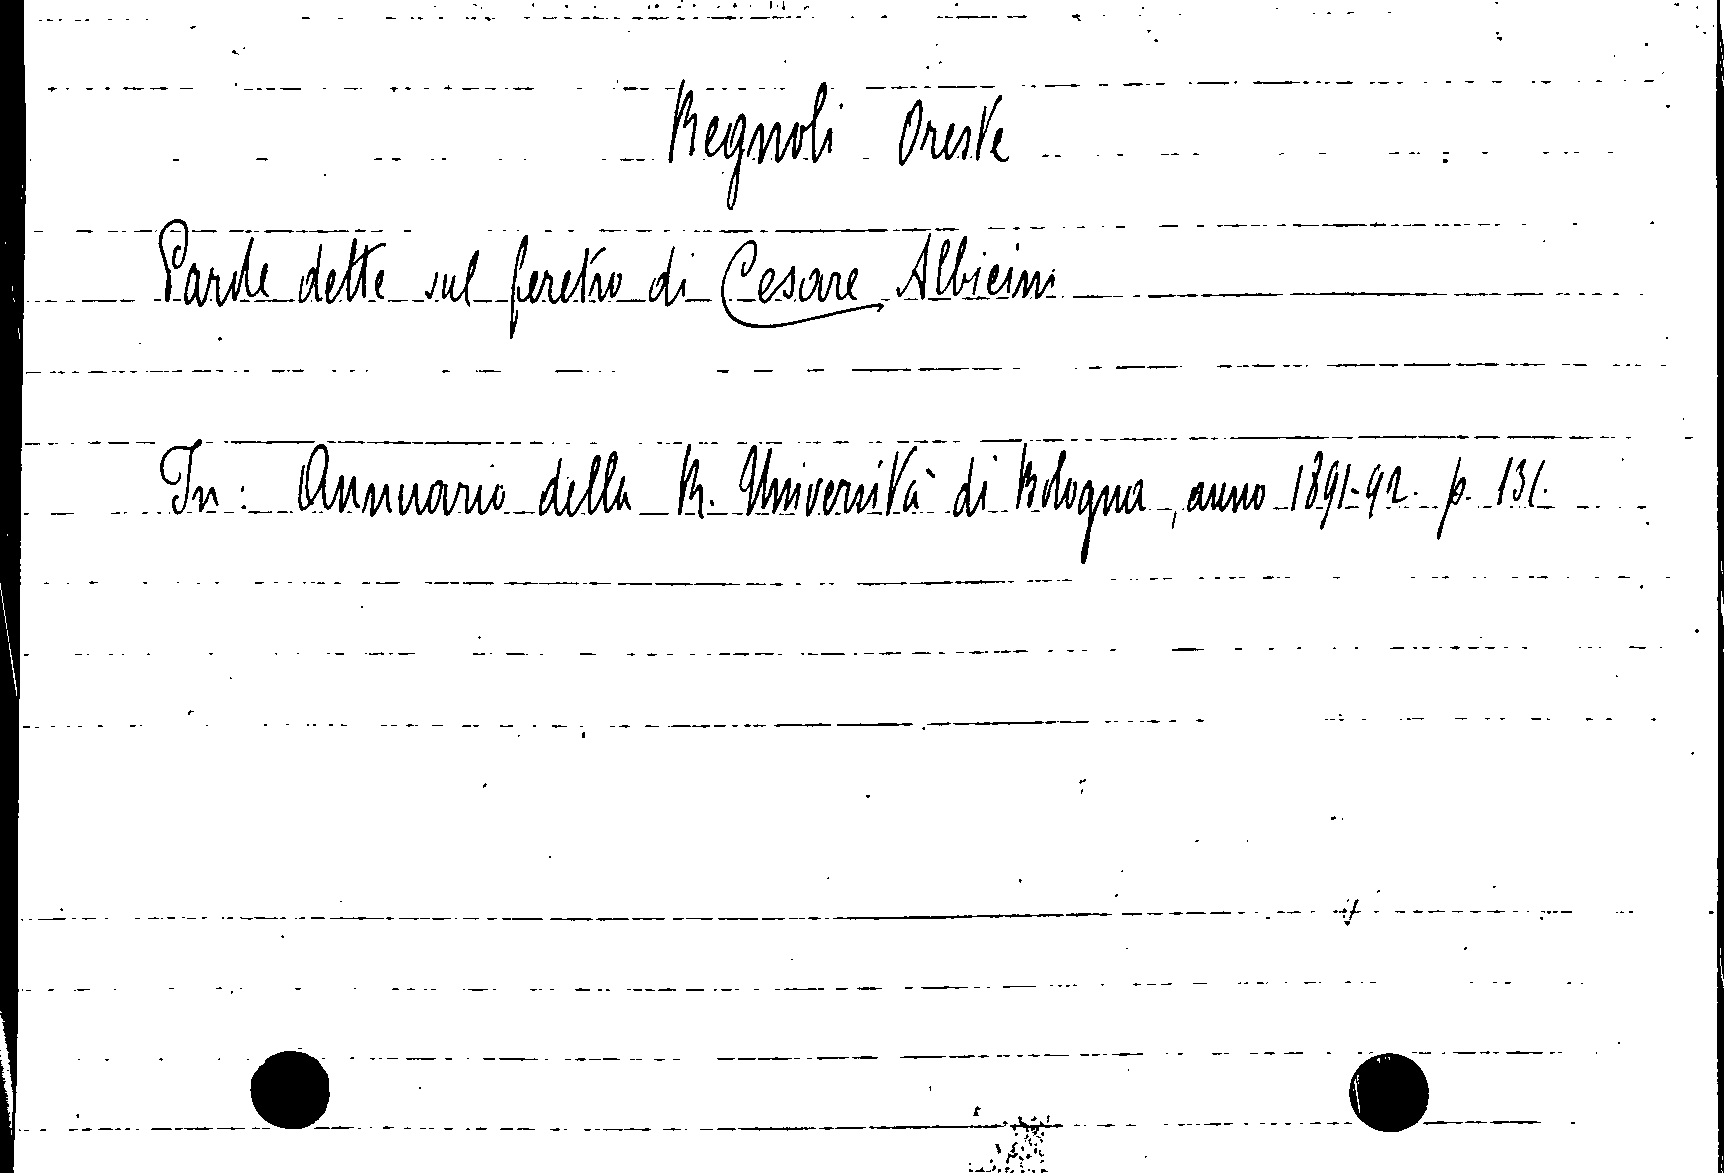 Regnoli Oreste
Parole dette sul feretro di Cesare Albicini
In: Annuario della R. Università di Bologna, anno 1891-92. p. 131.